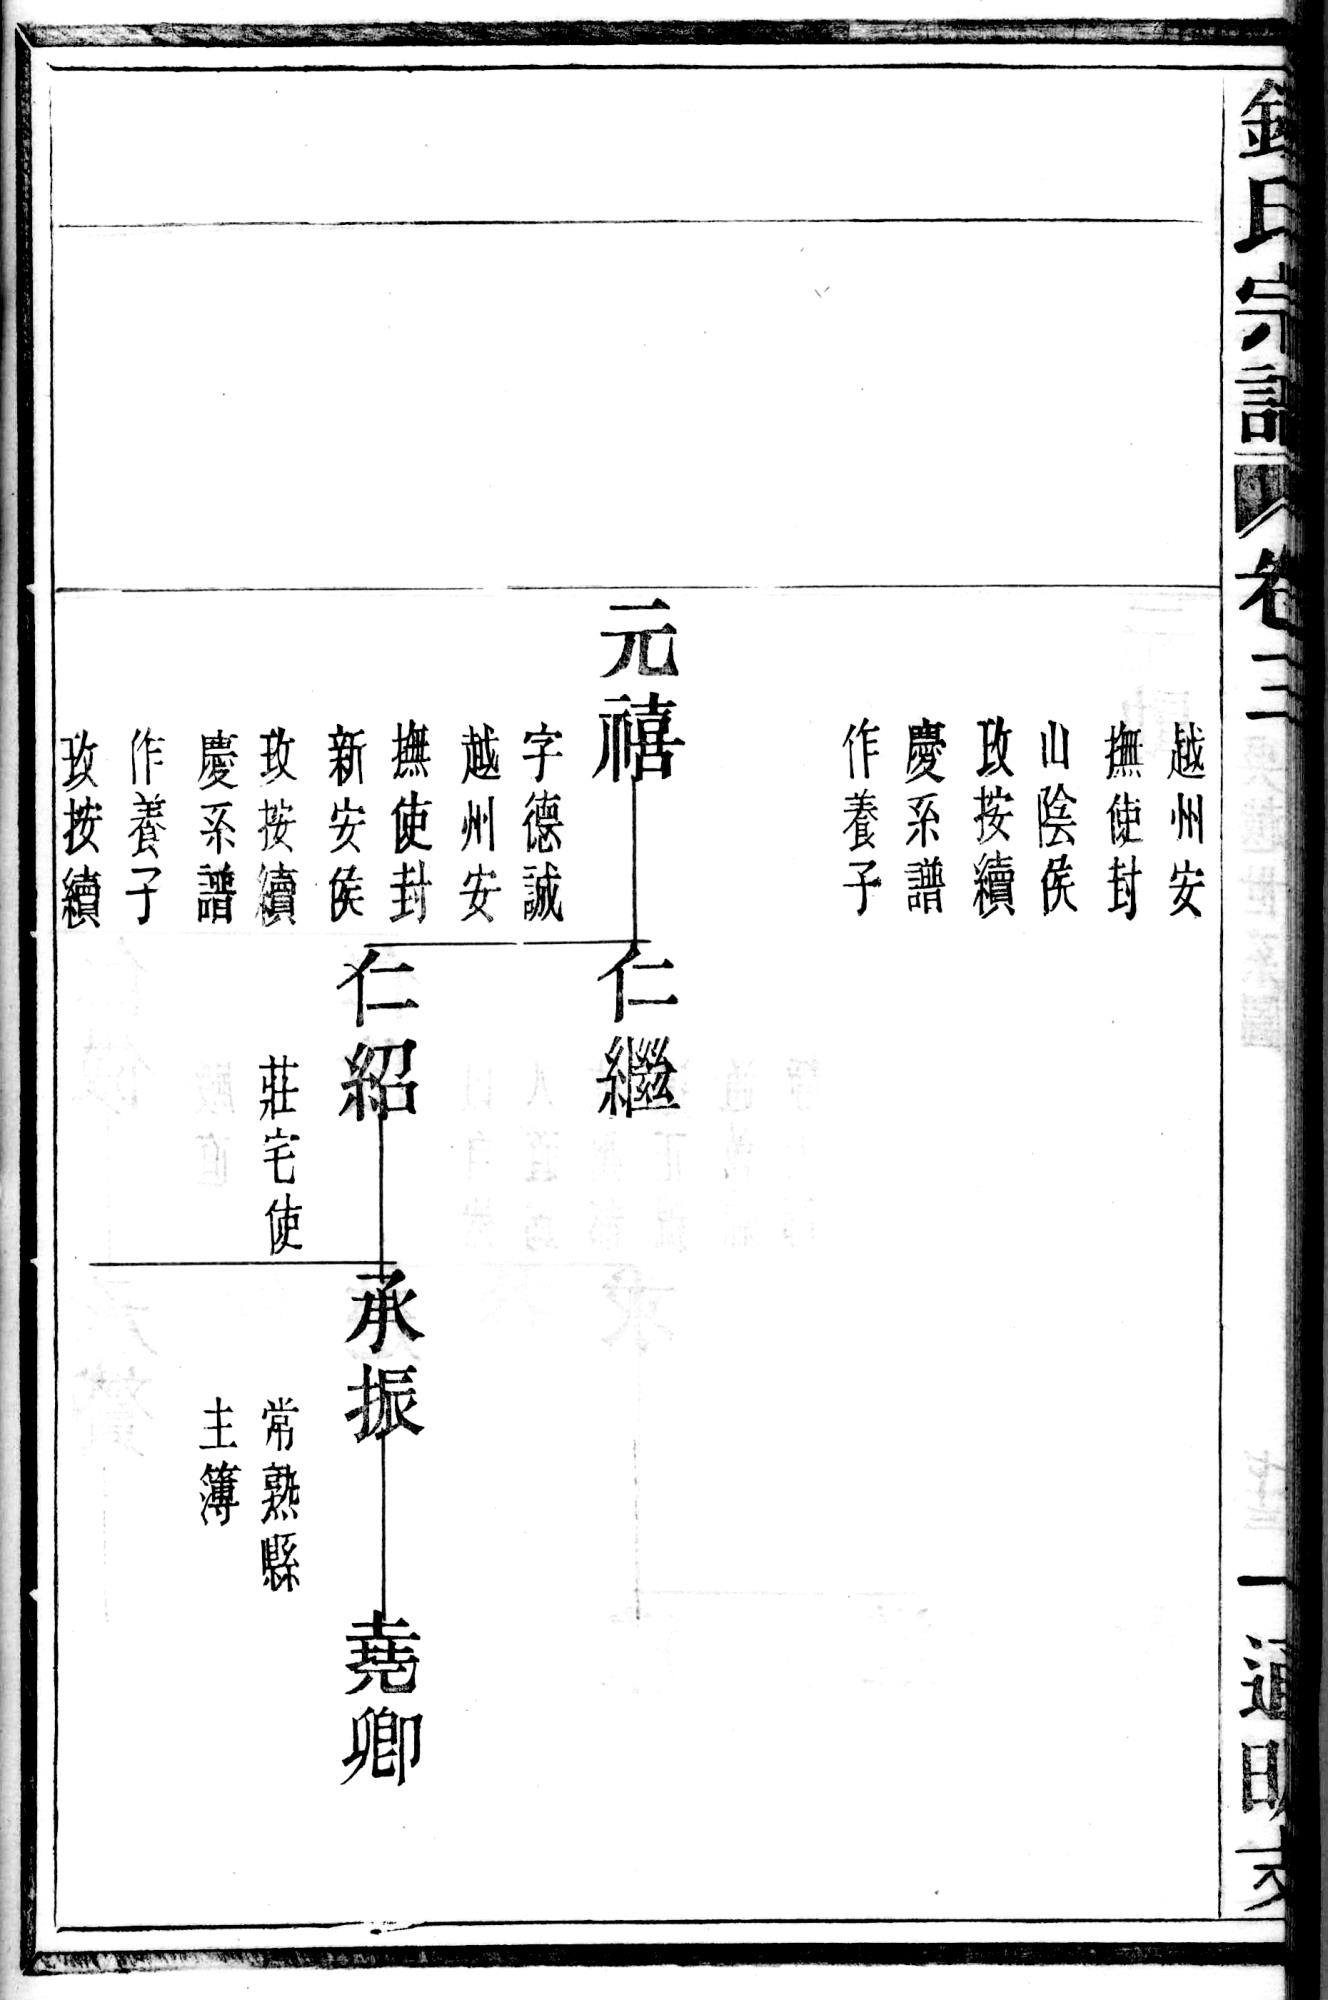 錢氏宗譜
卷三
通明支
越州安
撫使封
山陰侯
攷按續
慶系譜
作養子
元禧
字德誠
越州安
撫使封
新安侯
攷按續
慶系譜
作養子
攷按續
仁繼
仁紹
莊宅使
承振
常熟縣
主簿
堯卿